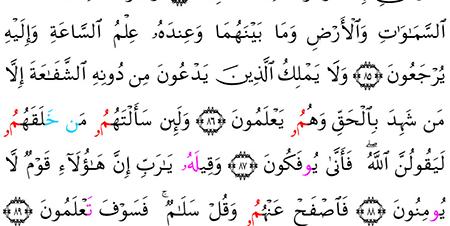 السَّمَٰوَٰتِ وَالْأَرْضِ وَمَا بَيْنَهُمَا وَعِندَهُۥ عِلْمُ السَّاعَةِ وَإِلَيْهِ
يُرْجَعُونَ ﴿٨٥﴾ وَلَا يَمْلِكُ الَّذِينَ يَدْعُونَ مِن دُونِهِ الشَّفَٰعَةَ إِلَّا
مَن شَهِدَ بِالْحَقِّ وَهُمُۥ يَعْلَمُونَ ﴿٨٦﴾ وَلَئِن سَأَلْتَهُمُۥ مَن خَلَقَهُمُۥ
لَيَقُولُنَّ اللَّهُ ۖ فَأَنَّىٰ يُوفَكُونَ ﴿٨٧﴾ وَقِيلَهُۥ يَٰرَبِّ إِنَّ هَٰؤُلَاءِ قَوْمٌ لَّا
يُومِنُونَ ﴿٨٨﴾ فَاصْفَحْ عَنْهُمُۥ وَقُلْ سَلَٰمٌ ۚ فَسَوْفَ تَعْلَمُونَ ﴿٨٩﴾